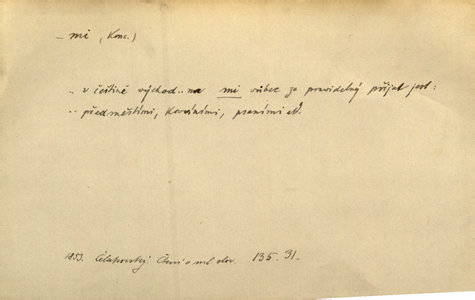 – mi (Konc.)
.. v češtině východ.. na mi vůbec za pravidelný přijat jest:
.. předměstími, kováními, psaními atd.
1853. Čelakovský Čtení o ml slov. 135. 31.